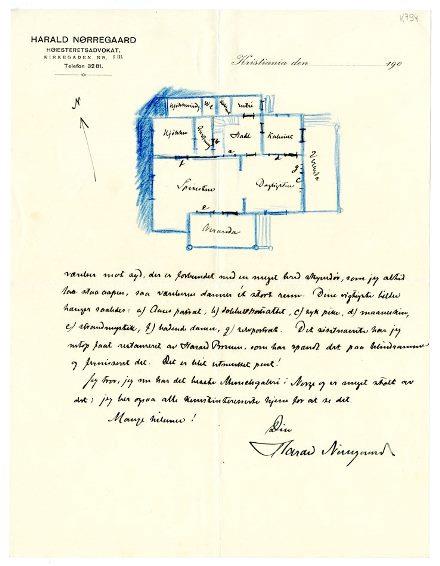 N 794
HARALD NØRREGAARD
HØIESTERETSADVOKAT.
KIRKEGADEN NR.
Telefon 3281.
Kristiania den 190
N
Kjøkken
Hall
Kabinet
Veranda
Spisestue
Dagligstue
Veranda
værelser mot syd, der er forbundet med en meget bred skyvedør, som jeg altid
har staaende aapen, saa værelserne danner ét stort rum. Dine vigtigste billeder
hænger saaledes: a) Aases portræt, b) dobbeltportrættet, c) syk pike, d) maaneskin,
e) strandmystik, f) badende damer, g) selvportræt. Det sistnævnte har jeg
netop faat restaurert av Harald Brun, som har spændt det paa blindramme
og fernissert det. Det er blit utmerket pent!
Jeg tror, jeg nu har det beste Munchgalleri i Norge og er meget stolt av
det; jeg ber ogsaa alle kunstinteresserte hjem for at se det
Mange hilsener!
Din
Harald Nørregaard